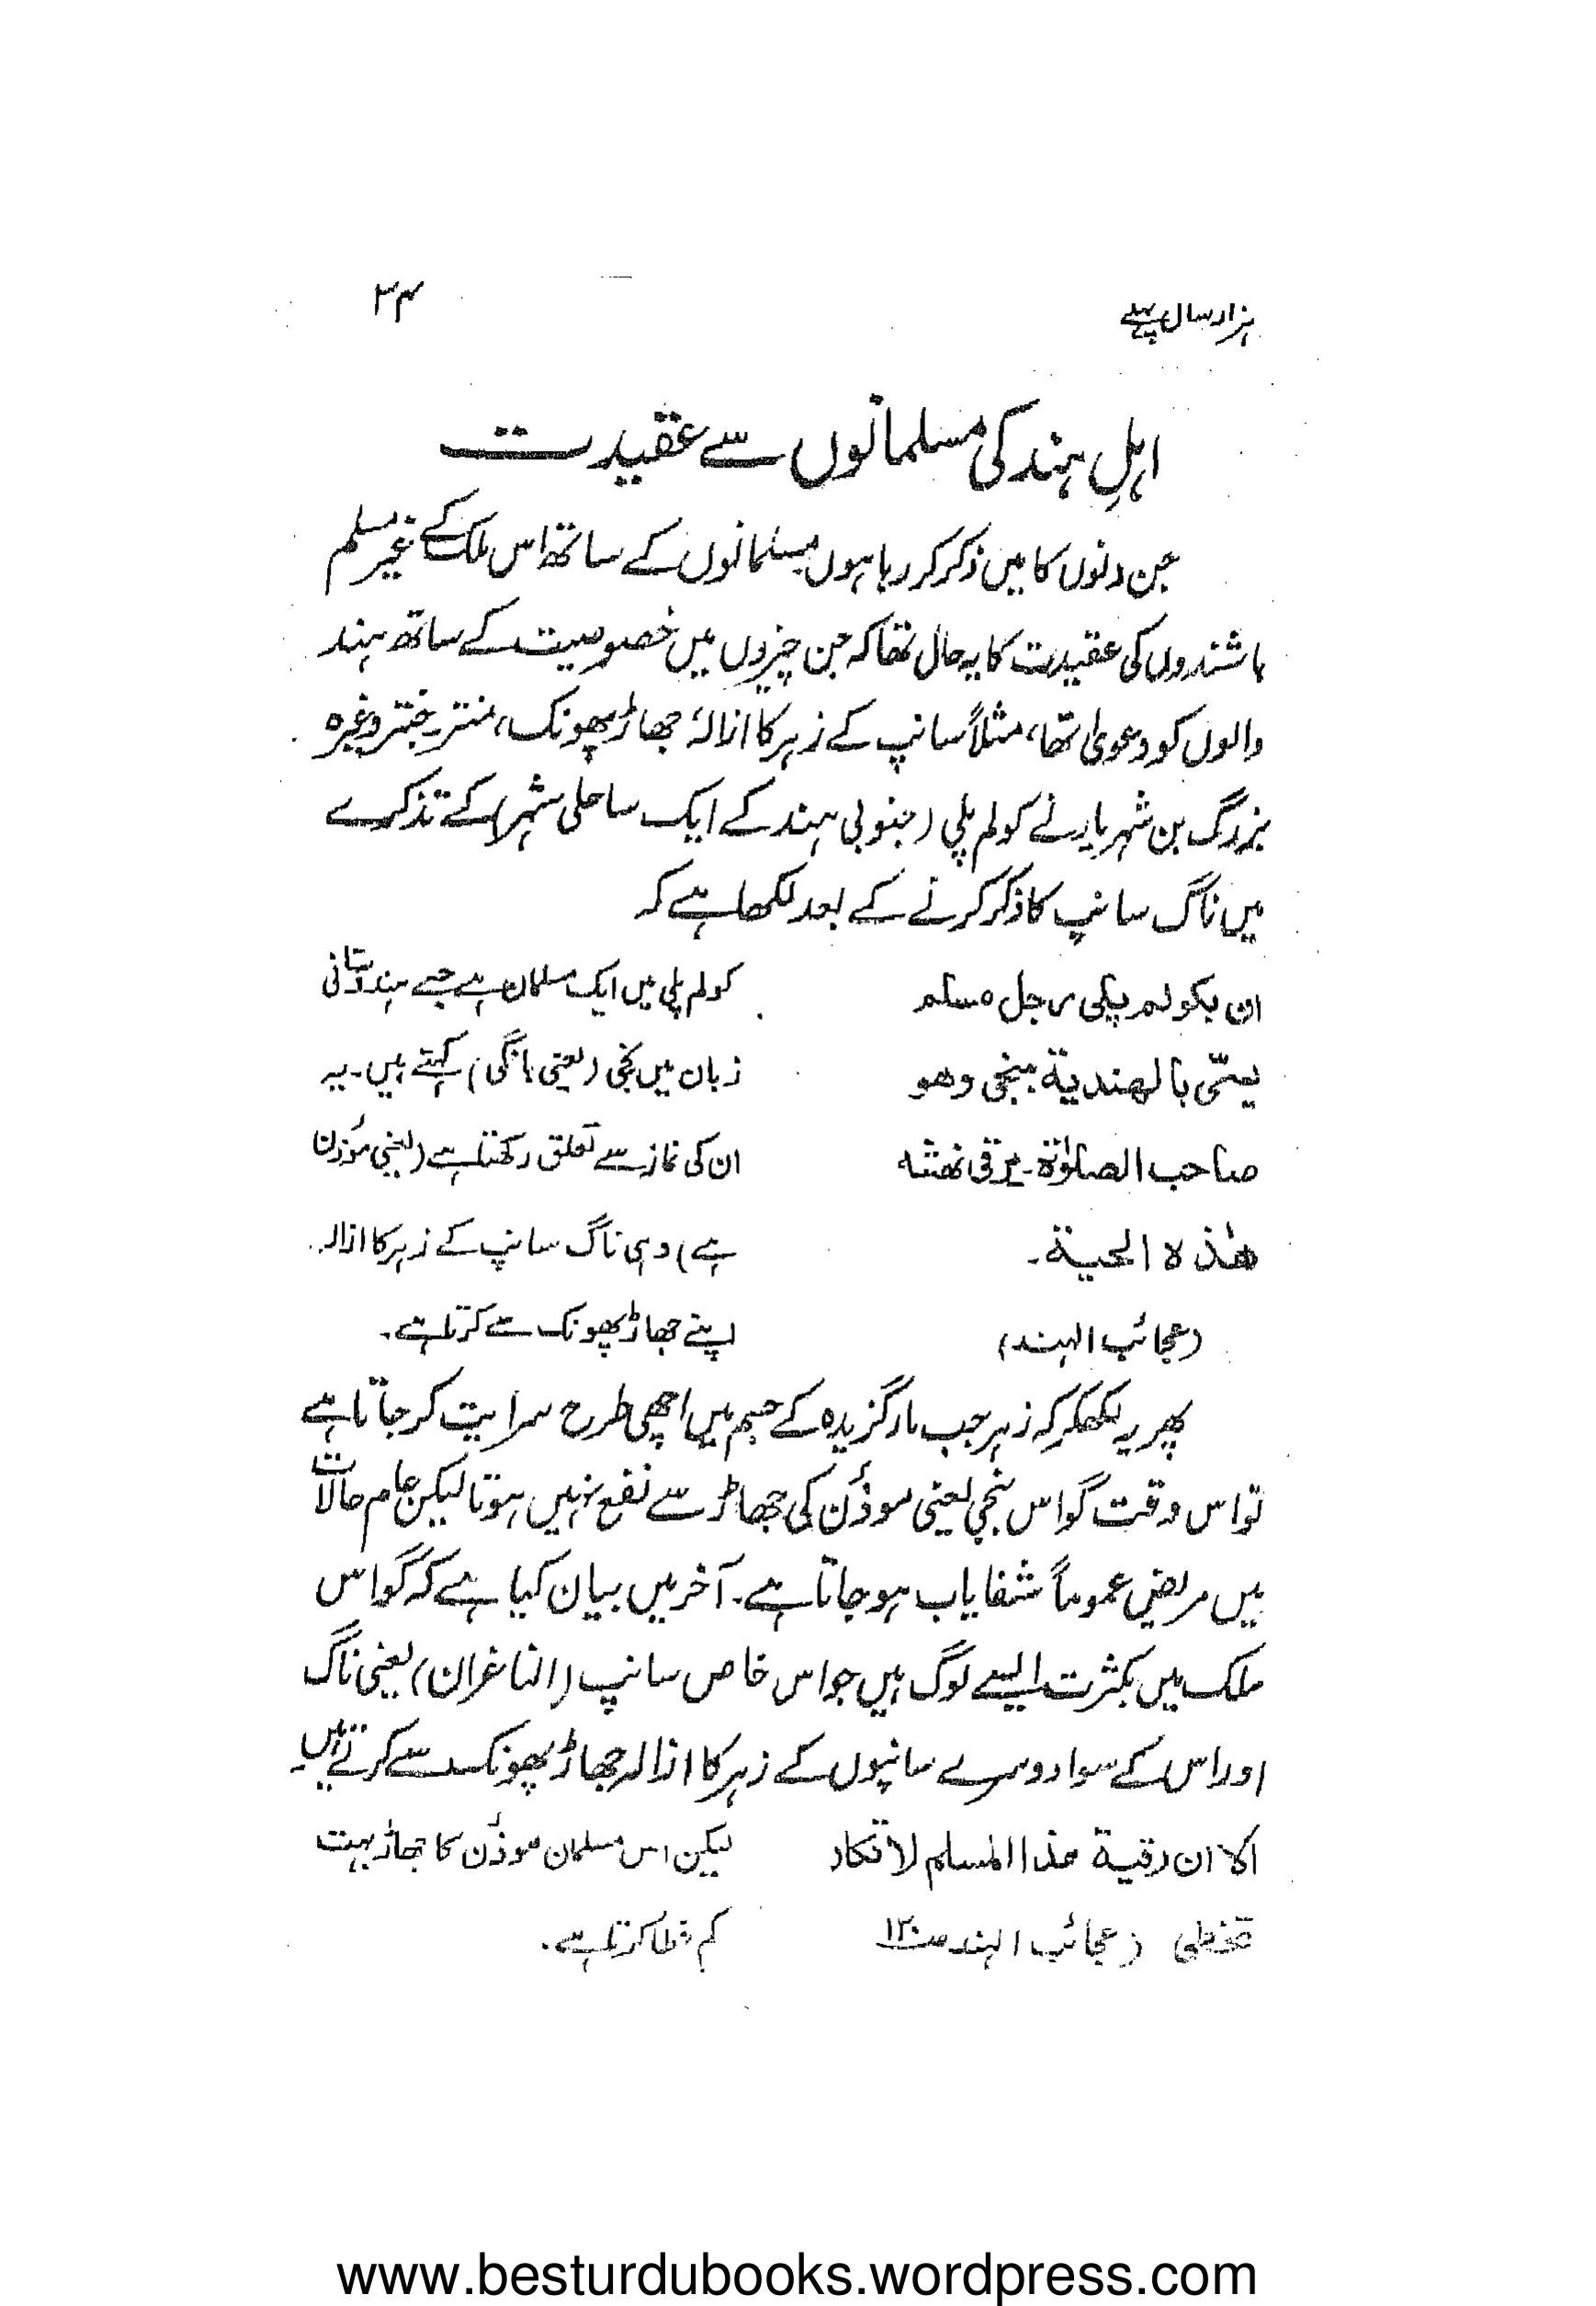 ہزار سال پہلے
۳۴
اہلِ ہند کی مسلمانوں سے عقیدت
جن دنوں کا میں ذکر کر رہا ہوں مسلمانوں کے ساتھ اس ملک کے غیر مسلم
باشندوں کی عقیدت کا یہ حال تھا کہ جن چیزوں میں خصوصیت کے ساتھ ہند
والوں کو دعویٰ تھا، مثلاً سانپ کے زہر کا ازالہ جھاڑ پھونک، منتر جنتر وغیرہ
بزرگ بن شہریار نے کولم پلی (جنوبی ہند کے ایک ساحلی شہر) کے تذکرے
میں ناگ سانپ کا ذکر کرنے کے بعد لکھا ہے کہ
ان بکولم پیلی رجل مسلم
یسمّی بالھندیة بنجی وھو
صاحب الصلوٰة۔ یرقی نھشه
ھٰذہ الحیة۔
(عجائب الہند)
کولم پلی میں ایک مسلمان ہے جسے ہندوستانی
زبان میں بنجی (یعنی بانگی) کہتے ہیں۔ یہ
ان کی نماز سے تعلق رکھتا ہے (یعنی مؤذن
ہے) وہی ناگ سانپ کے زہر کا ازالہ
اپنے جھاڑ پھونک سے کرتا ہے۔
پھر یہ لکھکر کہ زہر جب مارگزیدہ کے جسم میں اچھی طرح سرایت کر جاتا ہے
تو اس وقت گو اس بنجی یعنی موذّن کی جھاڑ سے نفع نہیں ہوتا لیکن عام حالات
میں مریض عموماً شفایاب ہو جاتا ہے۔ آخر میں بیان کیا ہے کہ گو اس
ملک میں بکثرت ایسے لوگ ہیں جو اس خاص سانپ (الناغران) یعنی ناگ
اور اس کے سوا دوسرے سانپوں کے زہر کا ازالہ جھاڑ پھونک سے کرتے ہیں۔
الا ان رقیة ھذا المسلم لا تکاد
تخطی (عجائب الہند ص۱۲۰
لیکن اس مسلمان موذّن کا جھاڑ بہت
کم خطا کرتا ہے۔
www.besturdubooks.wordpress.com